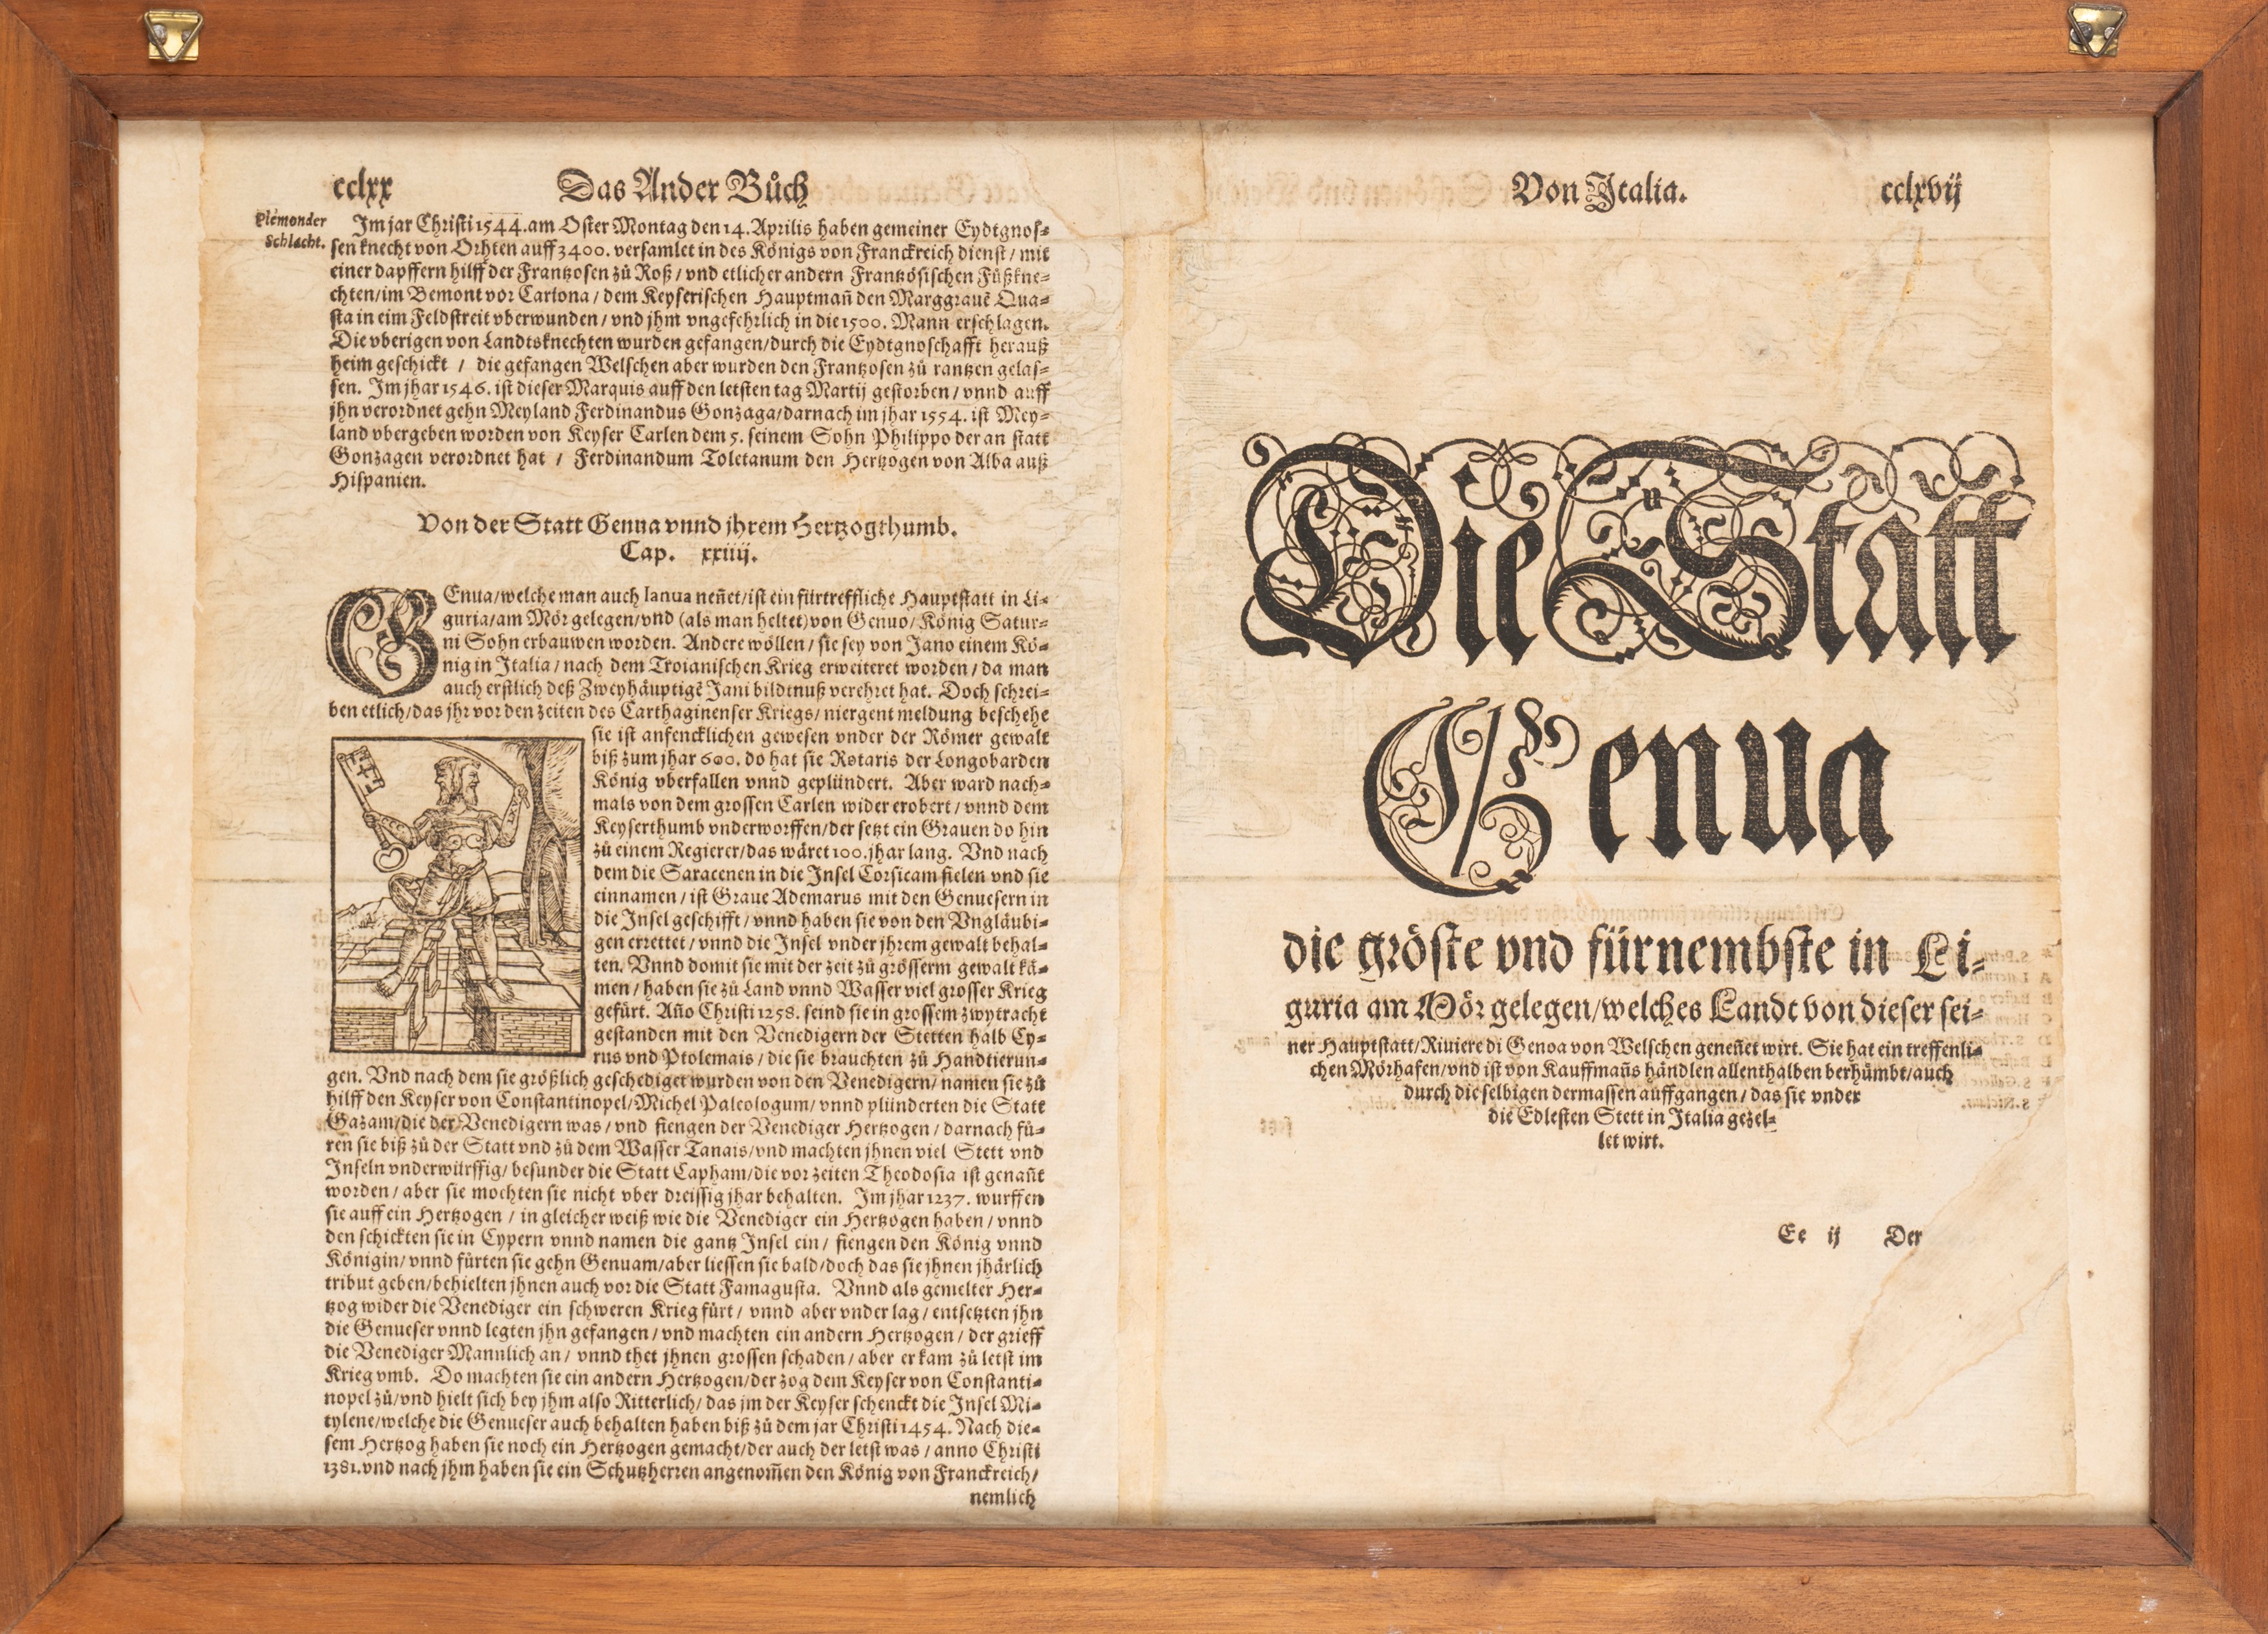 cclxx Das Ander Bůch
Plemonder
Schlacht.
Im jar Christi 1544. am Oster Montag den 14. Aprilis haben gemeiner Eydtgnos⸗
sen knecht von Orhten auff 3400. versamlet in des Königs von Franckreich dienst / mit
einer dapffern hilff der Frantzosen zů Roß / vnd etlicher andern Frantzösischen Fůßkne⸗
chten / im Bemont vor Cariona / dem Keyserischen Hauptmañ den Marggrauē Qua⸗
sta in eim Feldstreit vberwunden / vnd jhm vngefehrlich in die 1500. Mann erschlagen.
Die vberigen von Landtsknechten wurden gefangen / durch die Eydtgnoschafft herauß
heim geschickt / die gefangen Welschen aber wurden den Frantzosen zů rantzen gelas⸗
sen. Im jhar 1546. ist dieser Marquis auff den letsten tag Martij gestorben / vnnd auff
jhn verordnet gehn Meyland Ferdinandus Gonzaga / darnach im jhar 1554. ist Mey⸗
land vbergeben worden von Keyser Carlen dem 5. seinem Sohn Philippo der an statt
Gonzagen verordnet hat / Ferdinandum Toletanum den Hertzogen von Alba auß
Hispanien.
Von der Statt Genua vnnd jhrem Hertzogthumb.
Cap. xxiiij.
GEnua / welche man auch Ianua neñet / ist ein fürtreffliche Hauptstatt in Li⸗
guria / am Mör gelegen / vnd (als man heltet) von Genuo / König Satur⸗
ni Sohn erbauwen worden. Andere wöllen / sie sey von Jano einem Kö⸗
nig in Italia / nach dem Troianischen Krieg erweiteret worden / da man
auch erstlich deß Zweyhäuptigē Jani bildtnuß verehret hat. Doch schrei⸗
ben etlich / das jhr vor den zeiten des Carthaginenser Kriegs / niergent meldung beschehe
sie ist anfencklichen gewesen vnder der Römer gewalt
biß zum jhar 600. do hat sie Rotaris der Longobarden
König vberfallen vnnd geplündert. Aber ward nach⸗
mals von dem grossen Carlen wider erobert / vnnd dem
Keyserthumb vnderworffen / der setzt ein Grauen do hin
zů einem Regierer / das wäret 100. jhar lang. Vnd nach
dem die Saracenen in die Insel Corsicam fielen vnd sie
einnamen / ist Graue Ademarus mit den Genuesern in
die Insel geschifft / vnnd haben sie von den Vngläubi⸗
gen errettet / vnnd die Insel vnder jhrem gewalt behal⸗
ten. Vnnd domit sie mit der zeit zů grösserm gewalt kä⸗
men / haben sie zů Land vnnd Wasser viel grosser Krieg
gefürt. Año Christi 1258. seind sie in grossem zwytracht
gestanden mit den Venedigern der Stetten halb Cy⸗
rus vnd Ptolemais / die sie brauchten zů Handtierun⸗
gen. Vnd nach dem sie größlich geschediget wurden von den Venedigern / namen sie zů
hilff den Keyser von Constantinopel / Michel Paleologum / vnnd plünderten die Statt
Gazam / die der Venedigern was / vnd fiengen der Venediger Hertzogen / darnach fů⸗
ren sie biß zů der Statt vnd zů dem Wasser Tanais / vnd machten jhnen viel Stett vnd
Inseln vnderwürffig / besunder die Statt Capham / die vor zeiten Theodosia ist genañt
worden / aber sie mochten sie nicht vber dreissig jhar behalten. Im jhar 1237. wurffen
sie auff ein Hertzogen / in gleicher weiß wie die Venediger ein Hertzogen haben / vnnd
den schickten sie in Cypern vnnd namen die gantz Insel ein / fiengen den König vnnd
Königin / vnnd fürten sie gehn Genuam / aber liessen sie bald / doch das sie jhnen jhärlich
tribut geben / behielten jhnen auch vor die Statt Famagusta. Vnnd als gemelter Her⸗
tzog wider die Venediger ein schweren Krieg fürt / vnnd aber vnder lag / entsetzten jhn
die Genueser vnnd legten jhn gefangen / vnd machten ein andern Hertzogen / der grieff
die Venediger Mannlich an / vnnd thet jhnen grossen schaden / aber er kam zů letst im
Krieg vmb. Do machten sie ein andern Hertzogen / der zog dem Keyser von Constanti⸗
nopel zů / vnd hielt sich bey jhm also Ritterlich / das jm der Keyser schenckt die Insel Mi⸗
tylene / welche die Genueser auch behalten haben biß zů dem jar Christi 1454. Nach die⸗
sem Hertzog haben sie noch ein Hertzogen gemacht / der auch der letst was / anno Christi
1381. vnd nach jhm haben sie ein Schutzherren angenom̄en den König von Franckreich /
nemlich
Von Italia. cclxvij
Die Statt
Genua
die gröste vnd fürnembste in Li⸗
guria am Mör gelegen / welches Landt von dieser sei⸗
ner Hauptstatt / Riuiere di Genoa von Welschen geneñet wirt. Sie hat ein treffenli⸗
chen Mörhafen / vnd ist von Kauffmañs händlen allenthalben berhümbt / auch
durch die selbigen dermassen auffgangen / das sie vnder
die Edlesten Stett in Italia gezel⸗
let wirt.
Ee ij Der